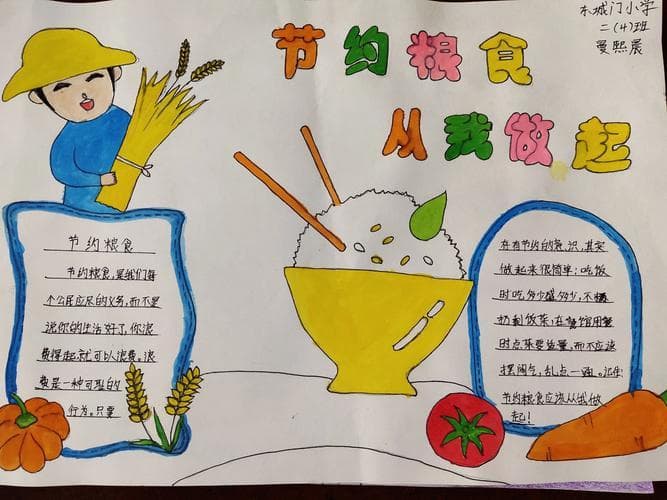 东城门小学
二(4)班
晏熙晨
节约粮食
从我做起
节约粮食
节约粮食,是我们每
个公民应尽的义务,而不是
说你的生活好了,你浪
费得起就可以浪费。浪
费是一种可耻的
行为。只要
存有节约的意识,其实
做起来很简单:吃饭
时吃多少盛多少,不
扔剩饭菜,在餐馆用餐
时点菜要适量,而不应该
摆阔气,乱点一通。
节约粮食应该从我做
起!